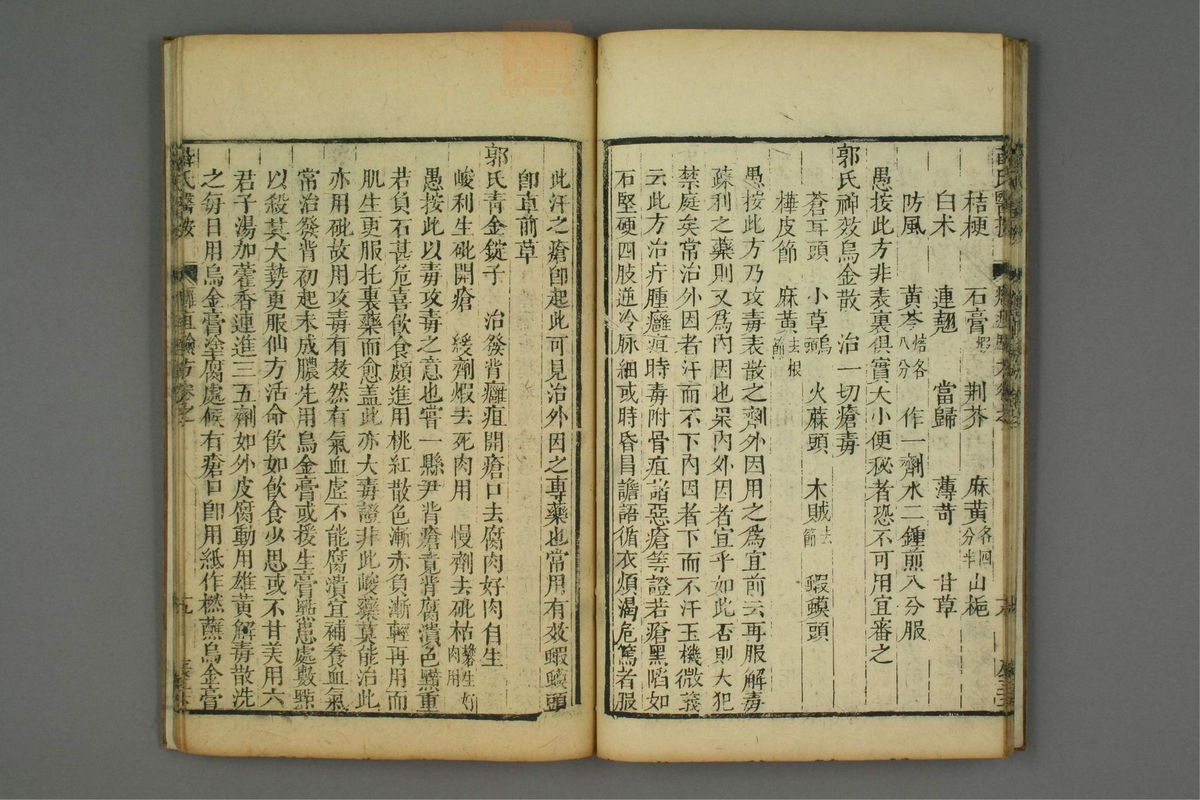 桔梗 石膏煆 荆芥 麻黄各四分半 山梔
白术 連翹 當歸 薄苛 甘草
防風 黄芩焙各八分 作一劑水二鍾煎八分服
愚按此方非表裏俱實大小便秘者恐不可用宜審之
郭氏神效烏金散 治一切瘡毒
蒼耳頭 小草烏頭 火蔴頭 木賊去節 蝦蟆頭
樺皮節 麻黄去根節
愚按此方乃攻毒表散之劑外因用之為宜前云再服解毒
疎利之藥則又為内因也果内外因者宜乎如此否則大犯
禁庭矣常治外因者汗而不下内因者下而不汗玉機微義
云此方治疔腫癰疽時毒附骨疽諸惡瘡等證若瘡黑陷如
石堅硬四肢逆冷脉細或時昏冒譫語循衣煩渴危篤者服
此汗之瘡卽起此可見治外因之專藥也當用有效蝦蟆頭
卽車前草
郭氏青金錠子 治發背癰疽開瘡口去腐肉好肉自生
峻利生砒開瘡 緩劑煆去死肉用 慢劑去砒枯礬生好肉用
愚按此以毒攻毒之意也嘗一縣尹背瘡竟背腐潰色黯重
若負石甚危喜飲食頗進用桃紅散色漸赤負漸輕再用而
肌生更服托裏藥而愈蓋此亦大毒證非此峻藥莫能治此
亦用砒故用攻毒有效然有氣血虛不能腐潰宜補養血氣
常治發背初起未成膿先用烏金膏或援生膏㸃患處數㸃
以殺其大勢更服仙方活命飲如飲食少思或不甘美用六
君子湯加藿香連進三五劑如外皮腐動用雄黄解毒散洗
之每日用烏金膏塗腐處候有瘡口卽用紙作撚蘸烏金膏
薛氏醫按 癰疽驗方卷之